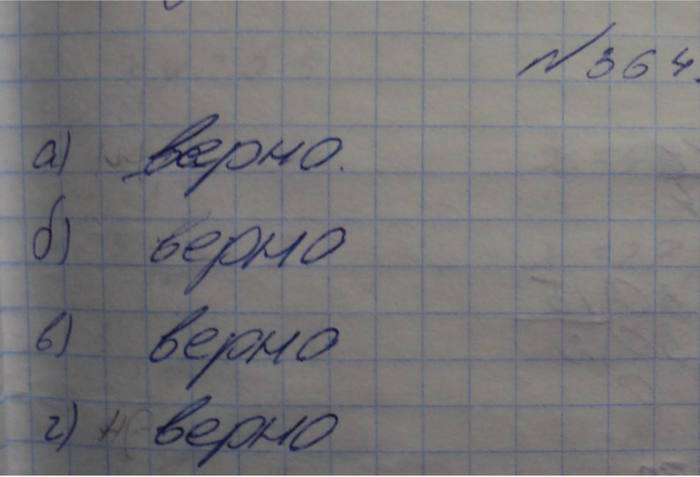 №364.
а) верно.
б) верно
в) верно
г) не верно